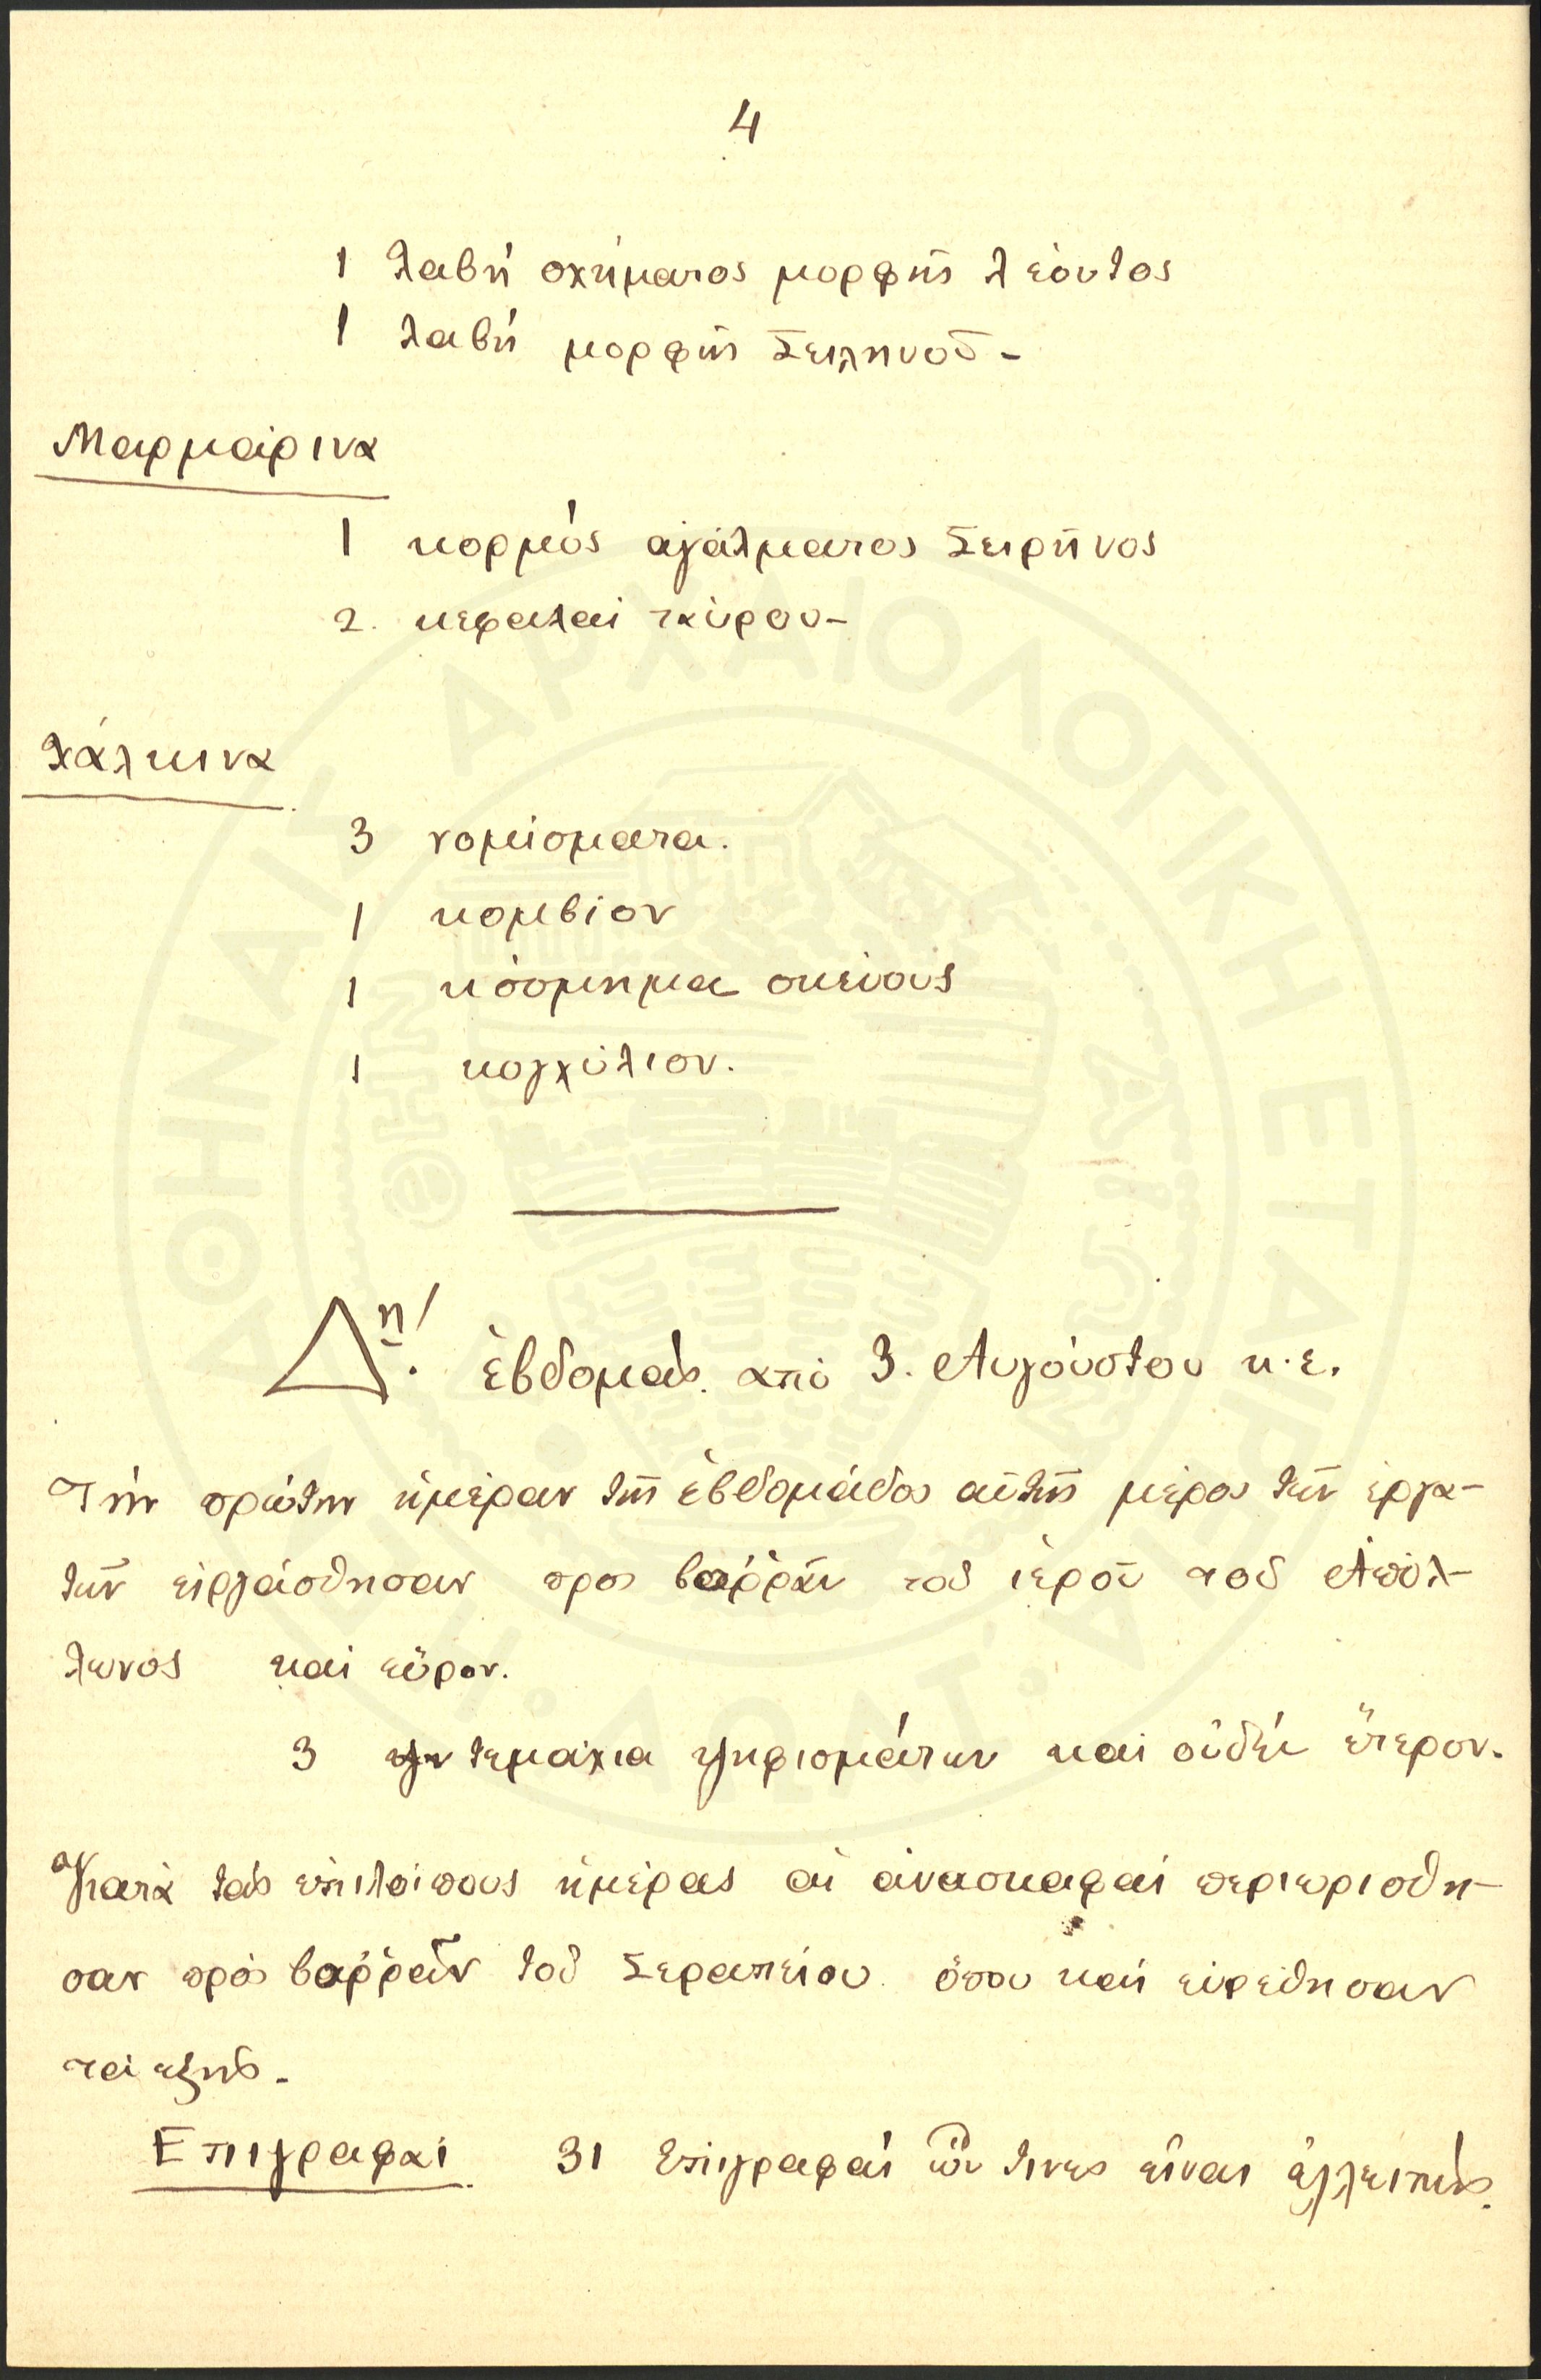 4
1 λαβή σχήματος μορφῆς λέοντος
1 λαβή μορφῆς Σειληνοῦ -
Μαρμάρινα
1 κορμός αγάλματος Σειρῆνος
2. κεφαλαί ταύρου -
Χάλκινα
3 νομίσματα.
1 κομβίον
1 κόσμημα σκεύους
1 κογχύλιον.
Δη! ἑβδομάς. από 3. Αυγούστου κ.ε.
Τήν πρώτην ἡμέραν τῆς ἑβδομάδος αὐτῆς μέρος τῶν ἐργα-
τῶν εἰργάσθησαν προς βοῤῥᾶν τοῦ ἱεροῦ τοῦ Ἀπόλ-
λωνος καί εὗρον.
3 τεμάχια ψηφισμάτων καί οὐδέν ἕτερον.
Κατά τάς ἐπιλοίπους ἡμέρας αἱ ἀνασκαφαί περιωρίσθη-
σαν πρός βοῤῥᾶν τοῦ Σεραπείου ὅπου καί εὑρέθησαν
τά εξῆς -
Επιγραφαί 31 Επιγραφαί ὧν τινες εἶναι ἐλλειπεῖς.
ΑΘΗΝΑΙΣ ΑΡΧΑΙΟΛΟΓΙΚΗ ΕΤΑΙΡΕΙΑ